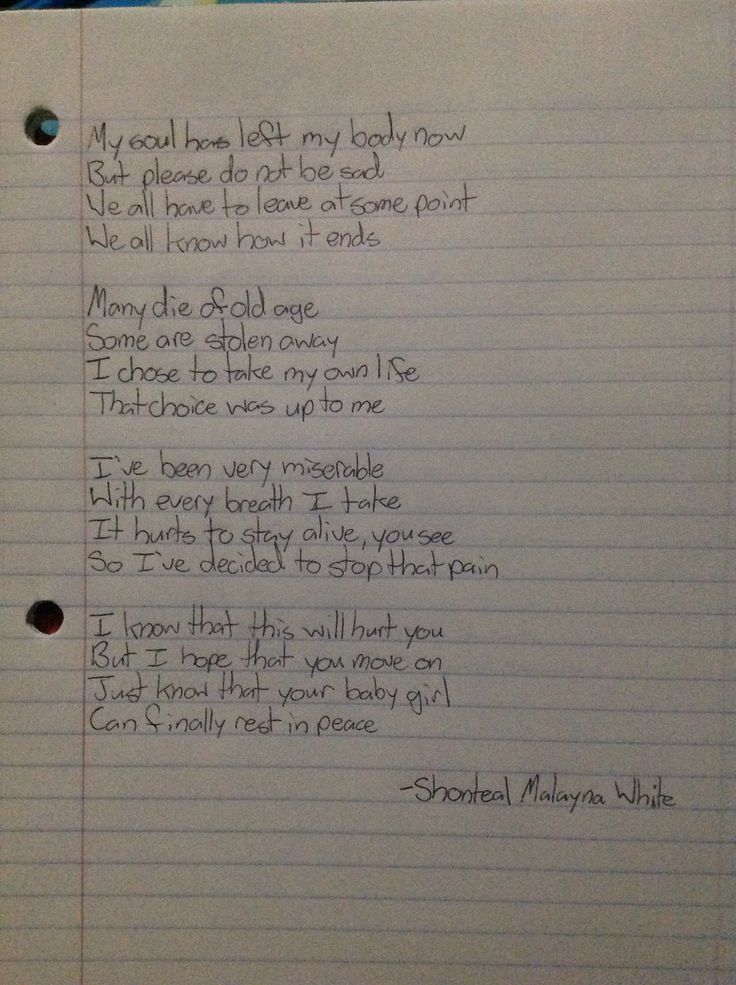 My soul has left my body now
But please do not be sad
We all have to leave at some point
We all know how it ends
Many die of old age
Some are stolen away
I chose to take my own life
That choice was up to me
I've been very miserable
With every breath I take
It hurts to stay alive, you see
So I've decided to stop that pain
I know that this will hurt you
But I hope that you move on
Just know that your baby girl
Can finally rest in peace
-Shonteal Malayna White